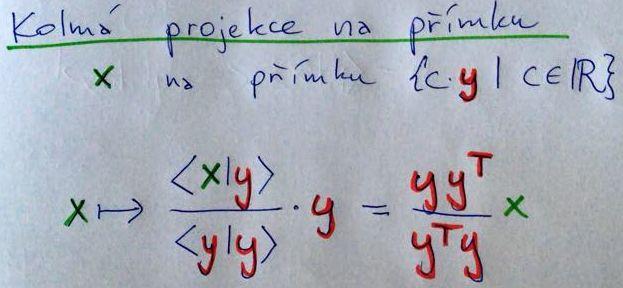 Kolmá projekce na přímku
x na přímku {c·y | c∈ℝ}
x ↦ <x|y> / <y|y> · y = yyᵀ / yᵀy x